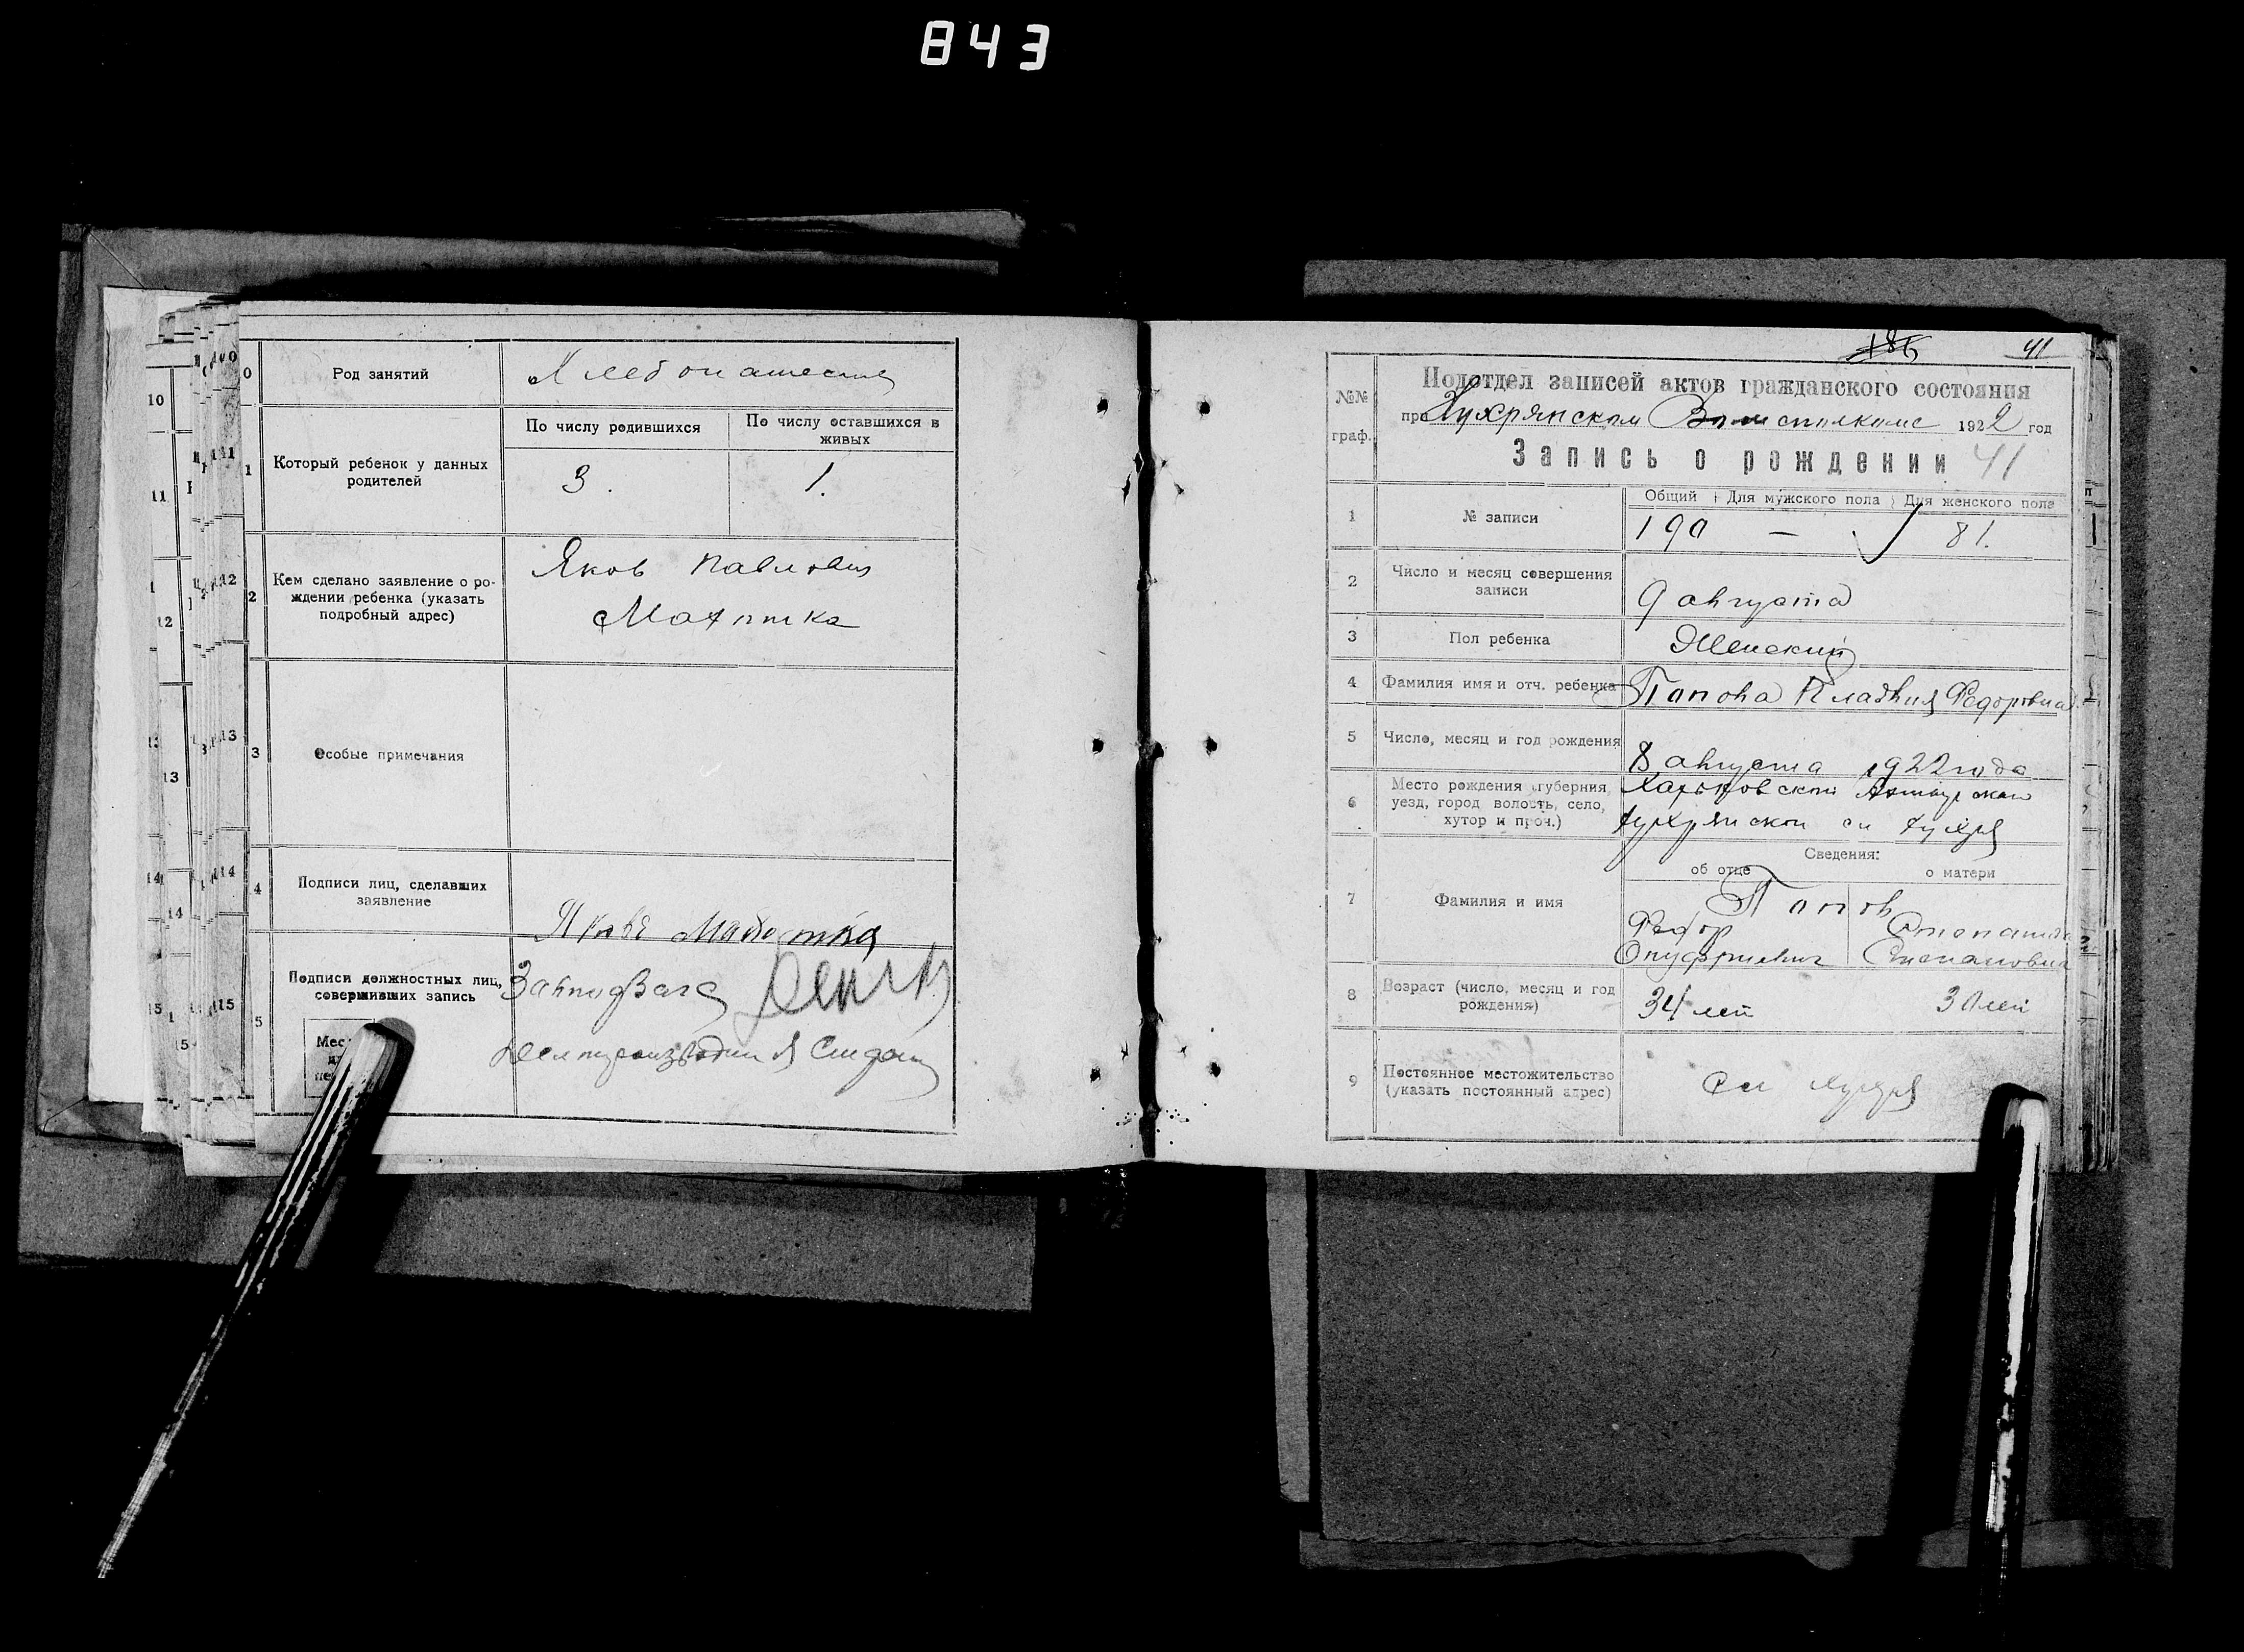 843
10
11
12
13
14
15
0
Род занятий
Хлебопашество
1
Который ребенок у данных родителей
По числу родившихся
По числу оставшихся в живых
3.
1.
2
Кем сделано заявление о рождении ребенка (указать подробный адрес)
Яков Павлович
3
Особые примечания
4
Подписи лиц, сделавших заявление
5
Подписи должностных лиц, совершивших запись
Завподзагс
186
41
№№ граф.
Подотдел записей актов гражданского состояния
при Хухрянском Волисполкоме 1922 год
Запись о рождении 41
1
№ записи
Общий
Для мужского пола
Для женского пола
190
—
81.
2
Число и месяц совершения записи
9 августа
3
Пол ребенка
Женский
4
Фамилия имя и отч. ребенка
Попова Клавдия Федоровна
5
Число, месяц и год рождения
8 августа 1922 года
6
Место рождения (губерния, уезд, город волость, село, хутор и проч.)
Харьковской Ахтырской
Хухрянской сл Хухря
7
Фамилия и имя
Сведения:
об отце
о матери
Попов
Федор
Онуфриевич
Степановна
8
Возраст (число, месяц и год рождения)
34 лет
30 лет
9
Постоянное местожительство (указать постоянный адрес)
сл Хухря